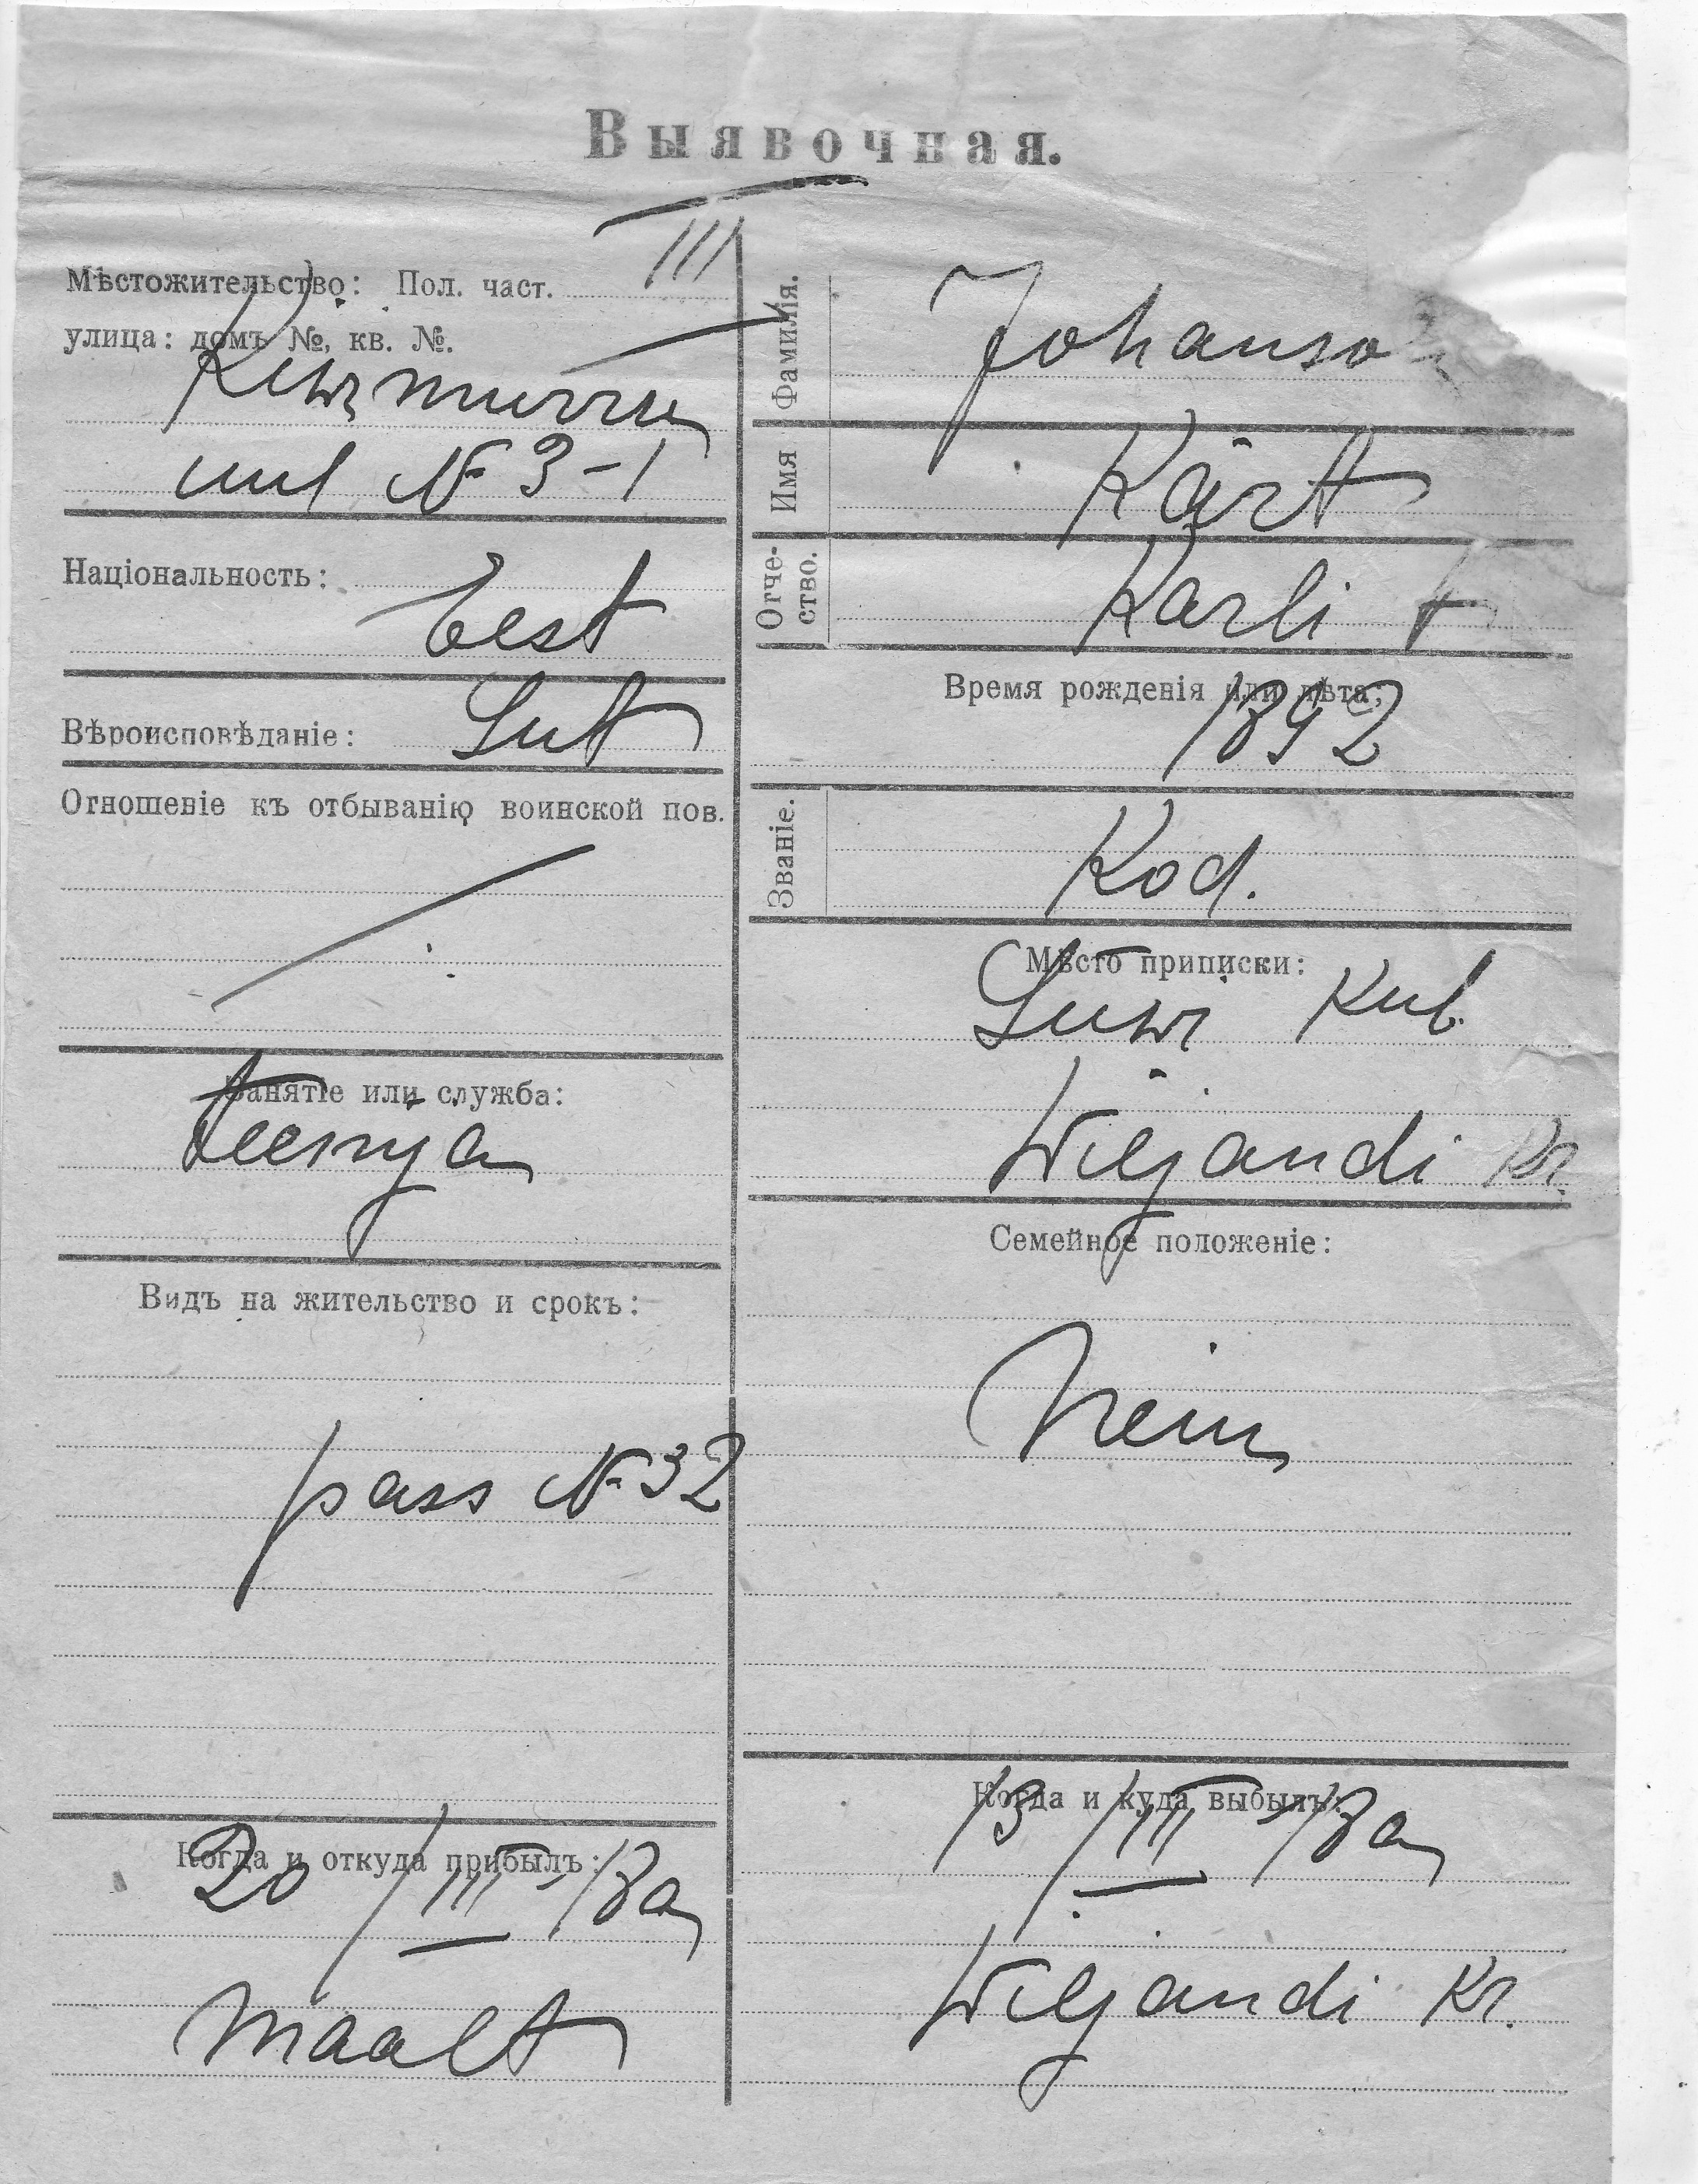 Выявочная.
Мѣстожительство: Пол. част. III
улица: домъ №, кв. №.
Kiwimurru
uul № 3-1
Національность:
Eest
Вѣроисповѣданіе: Lut
Отношеніе къ отбыванію воинской пов.
Занятіе или служба:
teenija
Видъ на жительство и срокъ:
pass № 32
Когда и откуда прибылъ:
20/III
maalt
Фамилія. Johanso
Имя Kärt
Отче-
ство. Karli t
Время рожденія или лѣта:
1892
Званіе. Kod.
Мѣсто приписки:
Suwi Kub.
Wiljandi Kr.
Семейное положеніе:
Когда и куда выбылъ:
13/III
Wiljandi Kr.